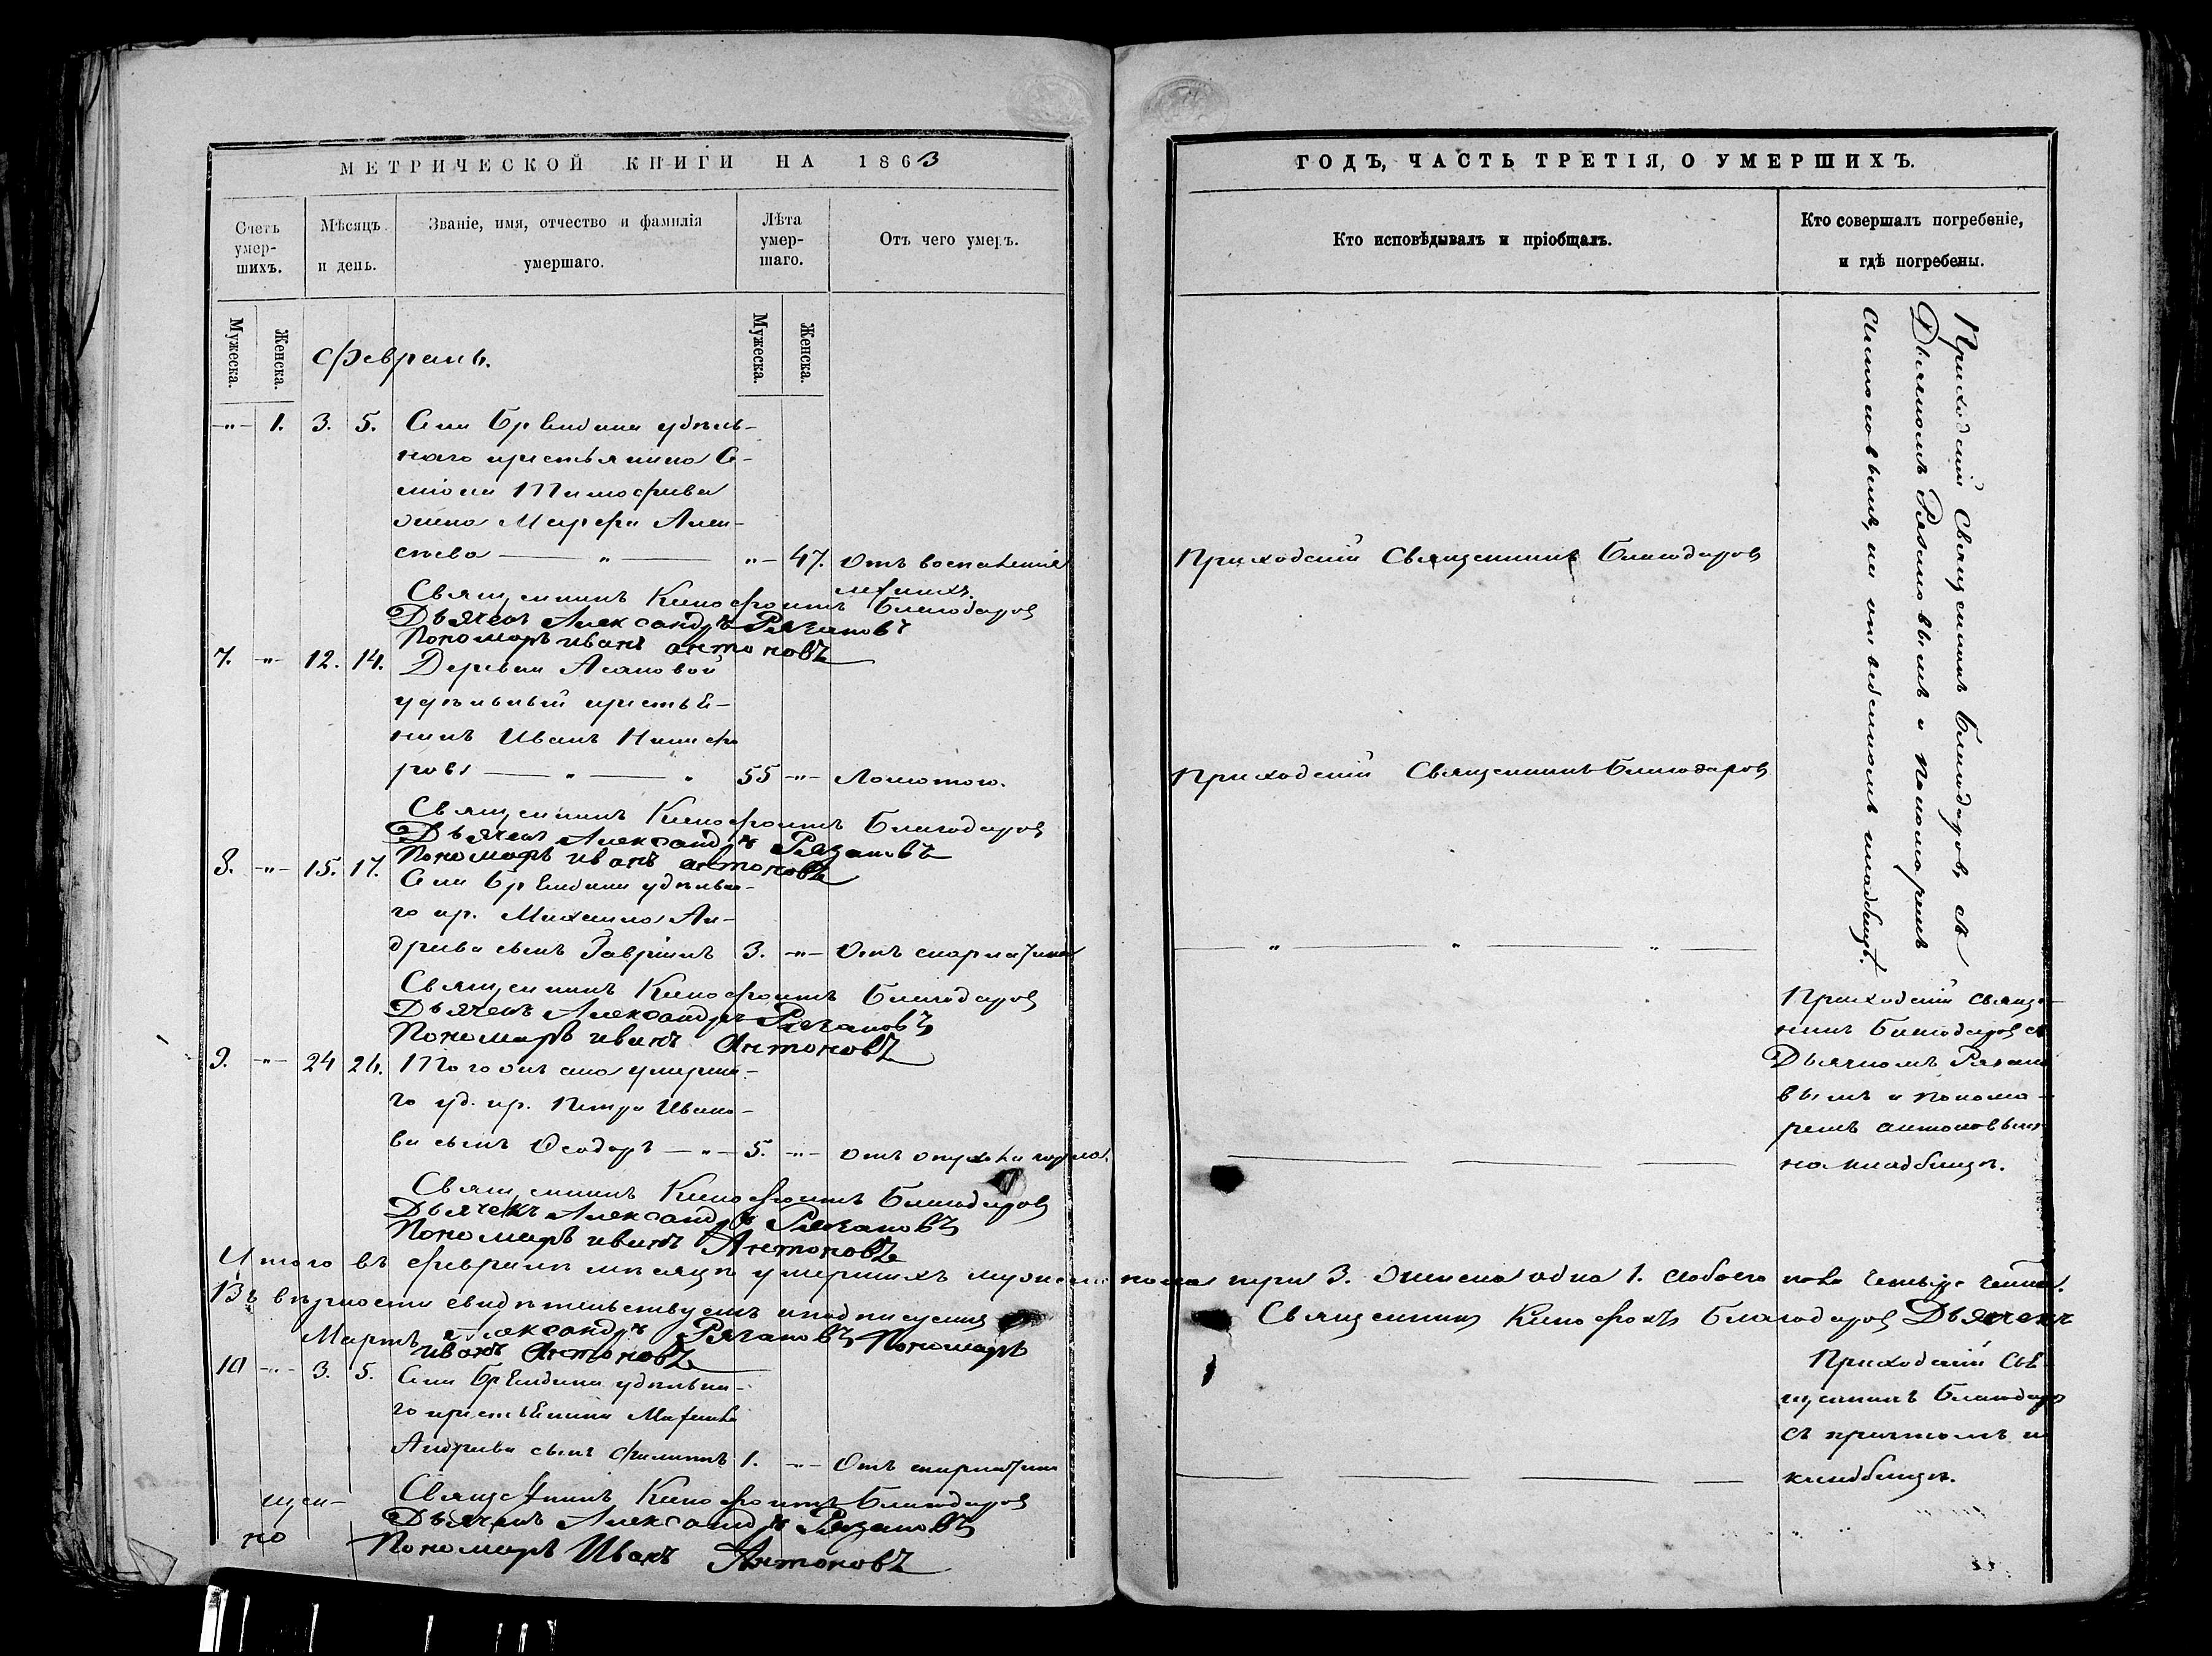 МЕТРИЧЕСКОЙ КНИГИ НА 1863
Счетъ умершихъ.
Мѣсяцъ и день.
Званіе, имя, отчество и фамилія умершаго.
Лѣта умершаго.
Отъ чего умеръ.
Мужеска.
Женска.
Мужеска.
Женска.
Февраль.
-"- 1. 3. 5. Села удѣль-
наго крестьянина С-
Тимофеева
жена Марфа Алек-
сѣева — " — "- 47. Отъ воспаленія
легкихъ.
Священникъ Ксенофонтъ Благодаровъ
Дьячекъ Александръ Рязановъ
Пономарь Иванъ Антоновъ
7. -"- 12. 14. Деревни Асановой
удѣльный крестья-
нинъ Иванъ Никифо
ровъ — " — " 55 -"- Ломотою.
Священникъ Ксенофонтъ Благодаровъ
Дьячекъ Александръ Рязановъ
Пономарь Иванъ Антоновъ
8. -"- 15. 17. Села удѣльна-
го кр. Михаила Ан-
дреева сынъ Гавріилъ 3. -"- Отъ скарлатины
Священникъ Ксенофонтъ Благодаровъ
Дьячекъ Александръ Рязановъ
Пономарь Иванъ Антоновъ
9. -"- 24 26. Того же села умерша-
го уд. кр. Петра Ивано-
ва сынъ Ѳеодоръ — " — 5. -"- Отъ опухоли горла.
Священникъ Ксенофонтъ Благодаровъ
Дьячекъ Александръ Рязановъ
Пономарь Иванъ Антоновъ
Итого въ февралѣ мѣсяцѣ умершихъ мужеска
Въ вѣрности свидѣтельствуемъ и подписуемся
Мартъ Александръ Рязановъ Пономарь
Иванъ Антоновъ
10 -"- 3. 5. Села удѣльна-
го крестьянина Матвея
Андреева сынъ Филиппъ 1. -"- Отъ скарлатины
Священникъ Ксенофонтъ Благодаровъ
Дьячекъ Александръ Рязановъ
Пономарь Иванъ Антоновъ
ГОДЪ, ЧАСТЬ ТРЕТІЯ, О УМЕРШИХЪ.
Кто исповѣдывалъ и пріобщалъ.
Кто совершалъ погребеніе, и гдѣ погребены.
Приходскій Священникъ Благодаровъ
Приходскій Священникъ Благодаровъ
Приходскій Священникъ Благодаровъ съ
Дьячкомъ Рязановымъ и Пономаремъ
Антоновымъ, на отведенномъ кладбищѣ.
Приходскій священ-
никъ Благодаровъ съ
Дьячкомъ Рязано
вымъ и понома-
ремъ Антоновымъ
на кладбищѣ.
пола три 3. женска одна 1. обоего пола четыре человѣка.
Священникъ Ксенофонтъ Благодаровъ Дьячекъ
Приходскій Свя-
щенникъ Благодаровъ
съ причтомъ на
кладбищѣ.